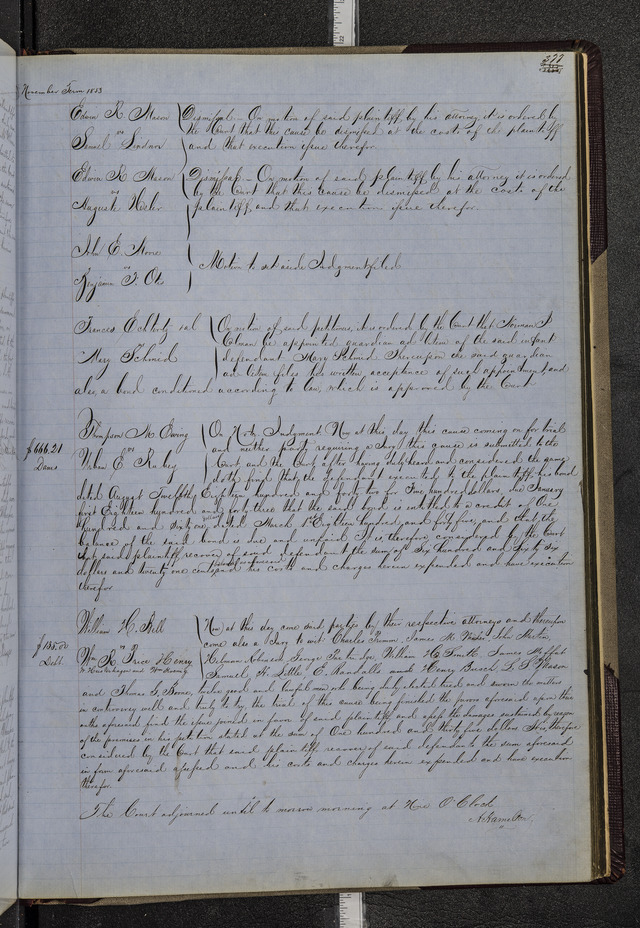 377
November Term 1853
Edwin R. Mason
vs
Samuel Lindman
Dismissal. On motion of said plaintiff, by his attorney it is ordered by
the Court that this cause be dismissed at the costs of the plaintiff
and that execution issue therefor.
Edwin R. Mason
vs
August
Dismissal - On motion of said plaintiff by his attorney it is ordered
by the Court that this cause be dismissed at the costs of the
plaintiff, and that execution issue therefor.
John E. Stone
vs
Benjamin F.
Motion to set aside Judgment filed
Frances et al
Mary Schmid
On motion of said petitioners, it is ordered by the Court that Norman
be appointed guardian ad litem of the said infant
defendant Mary Schmid Thereupon the said guardian
ad litem files his written acceptance of such appointment, and
also, a bond conditioned according to law, which is approved by the Court
$666.21
Dams
Thompson M. Ewing
vs
William E.
On Note Judgment Now at this day this cause coming on for trial
and neither party requiring a Jury this cause is submitted to the
Court and the Court after having duly heard and considered the same
doth find that the defendant executed to the plaintiff his bond
dated August Twelfth Eighteen hundred and forty two for Five hundred dollars, due January
first Eighteen hundred and forty three that the said bond is entitled to a credit of One
hundred and dated March 1st Eighteen hundred and fifty five, and that the
balance of the said bond is due and unpaid It is therefore considered by the Court
that said plaintiff recover of said defendant the sum of Six hundred and Sixty six
dollars and twenty one cents his costs and charges herein expended and have execution
therefor
$135.00
Debt
William H. Hell
vs
Wm R. Price Henry
Now at this day come said parties by their respective attorneys and thereupon
come also a Jury to wit: Charles James M. John
George William H. Smith James Moffat
Samuel H. Little, E. Randalls and Henry Beach, L. S. Mason
and Thomas G. twelve good and lawful men who being duly elected tried and sworn the matters
in controversy well and truly to try, the trial of this cause being finished the jurors aforesaid upon their
oaths aforesaid find the issue joined in favor of said plaintiff and assess the damages sustained by reason
of the premises in his petition stated at the sum of One hundred and thirty five dollars It is therefore
considered by the Court that said plaintiff recover of said defendants the sum aforesaid
in form aforesaid assessed and his costs and charges herein expended and have execution
therefor.
The Court adjourned until to morrow morning at Nine O'Clock
A. Hamilton